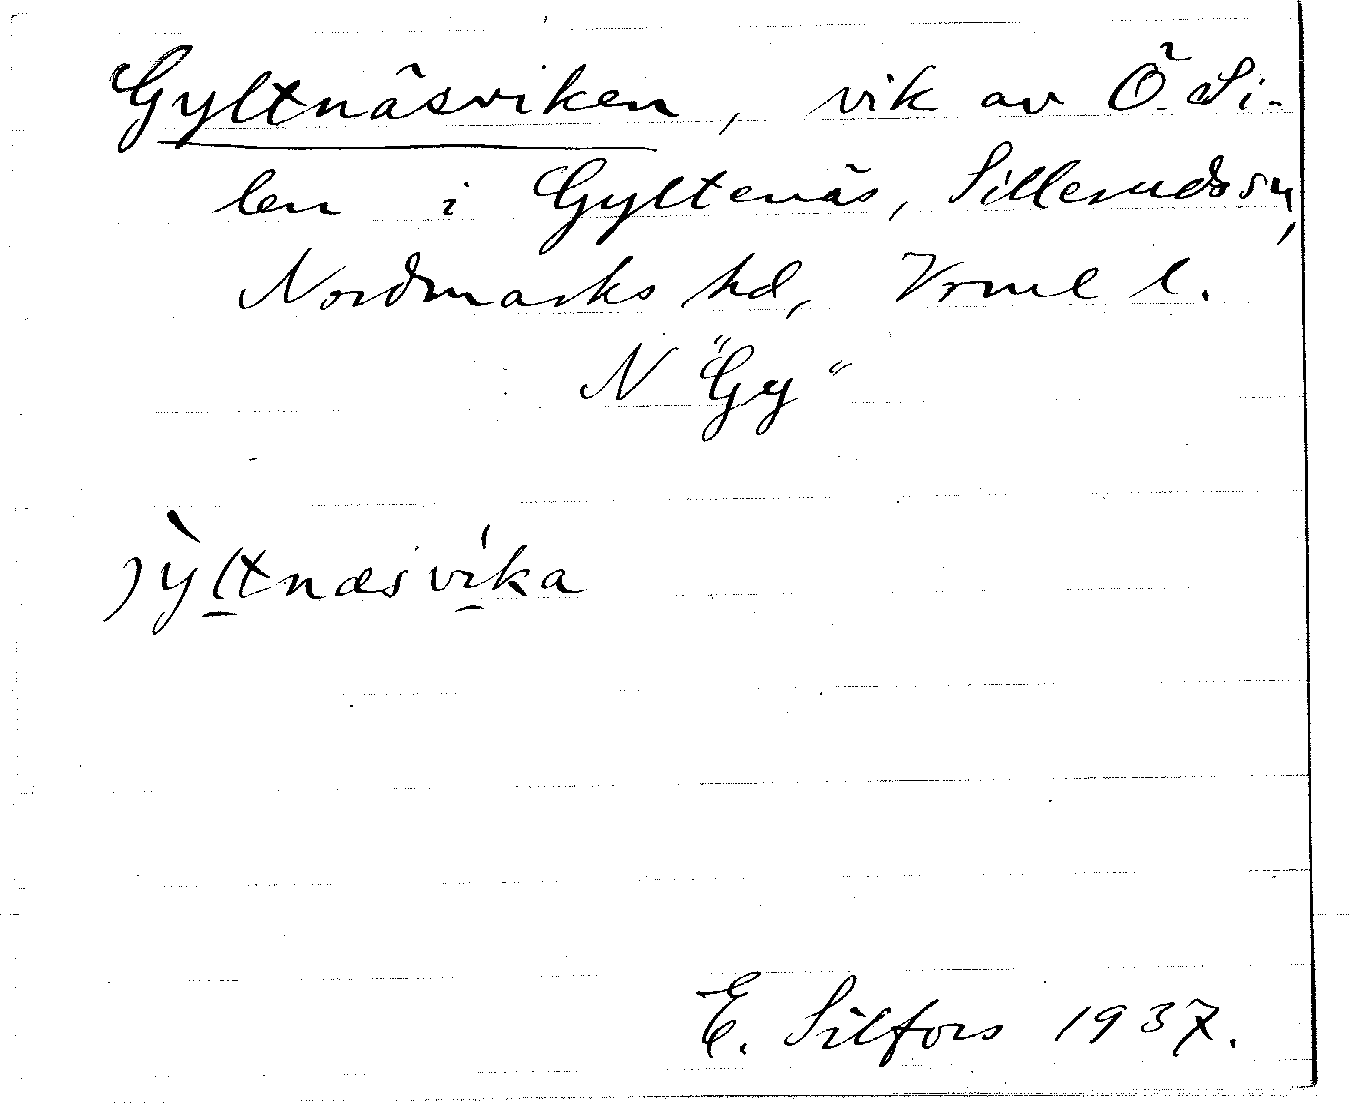 Gyltnäsviken, vik av Ö. Si-
len i Gyltenäs, Sillerudssn,
Nordmarks hd, Vrml l.
N "Gy"
jỳltnæsvíka
E. Silfors 1937.